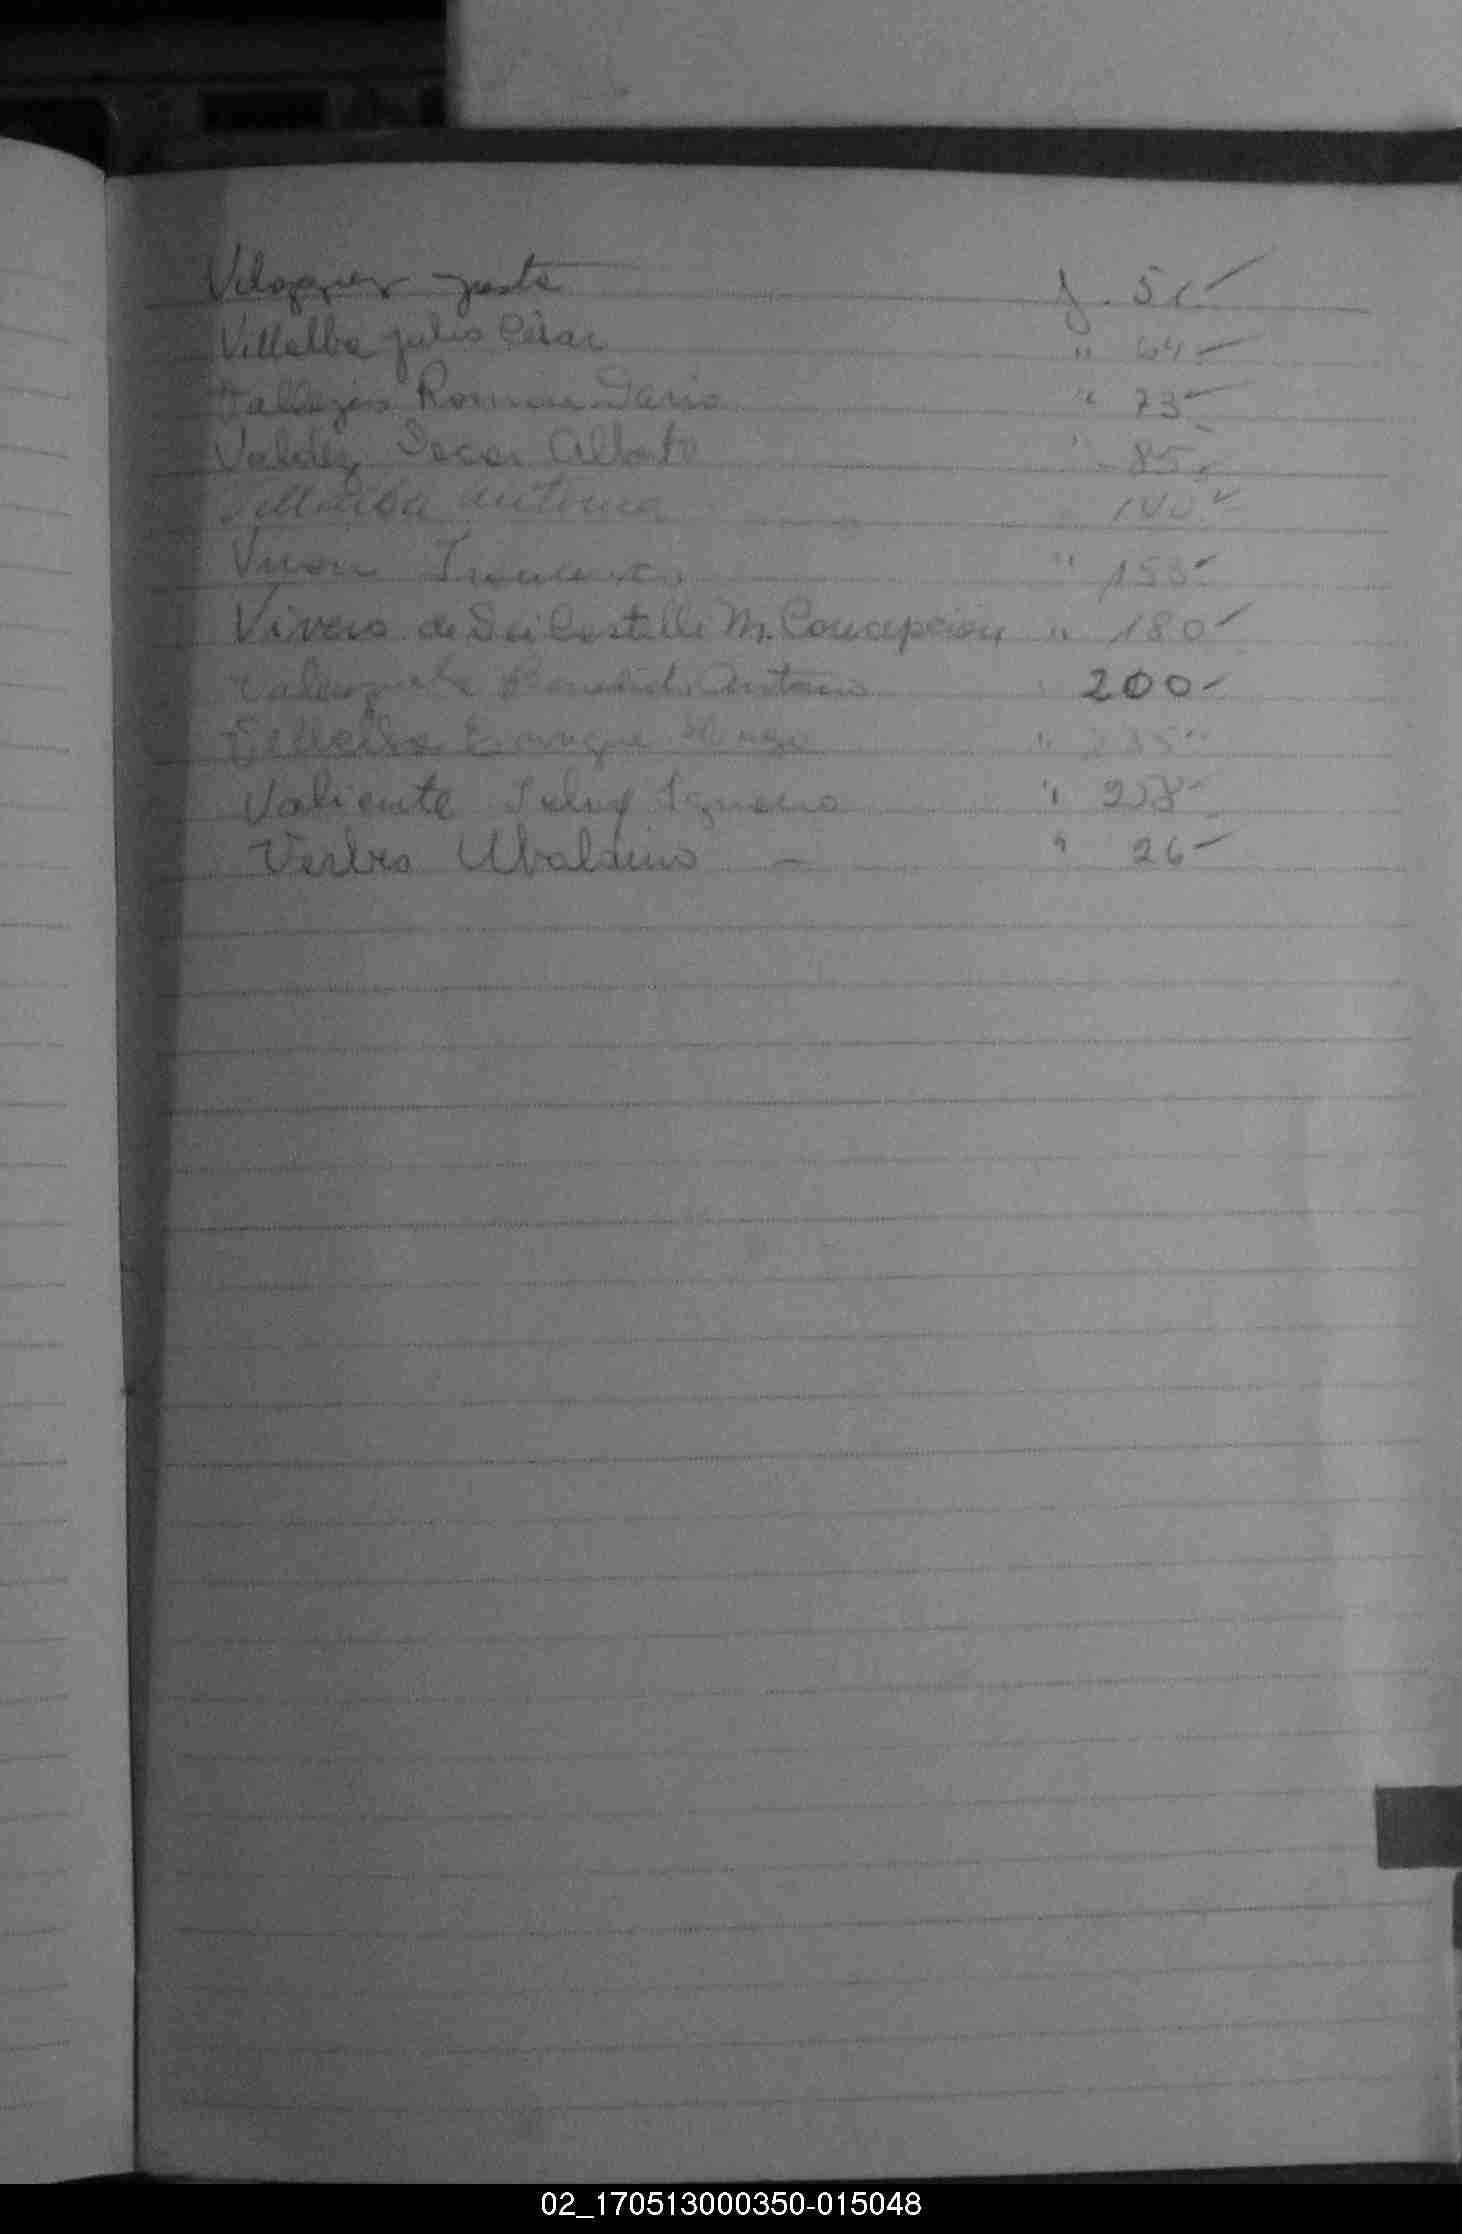 Velazquez Justo f. 51
Villalba Julio César " 64
Vallejos Roman Dario " 73
Valdez Oscar Alberto " 85
Villalba Antonia 140
" 153
Vivero de Dei Castelli M. Concepción " 180
Valenzuela Antonio 200
Villalba Enrique Hugo "
Valiente "
Verbes Ubaldino " 26
02_170513000350-015048